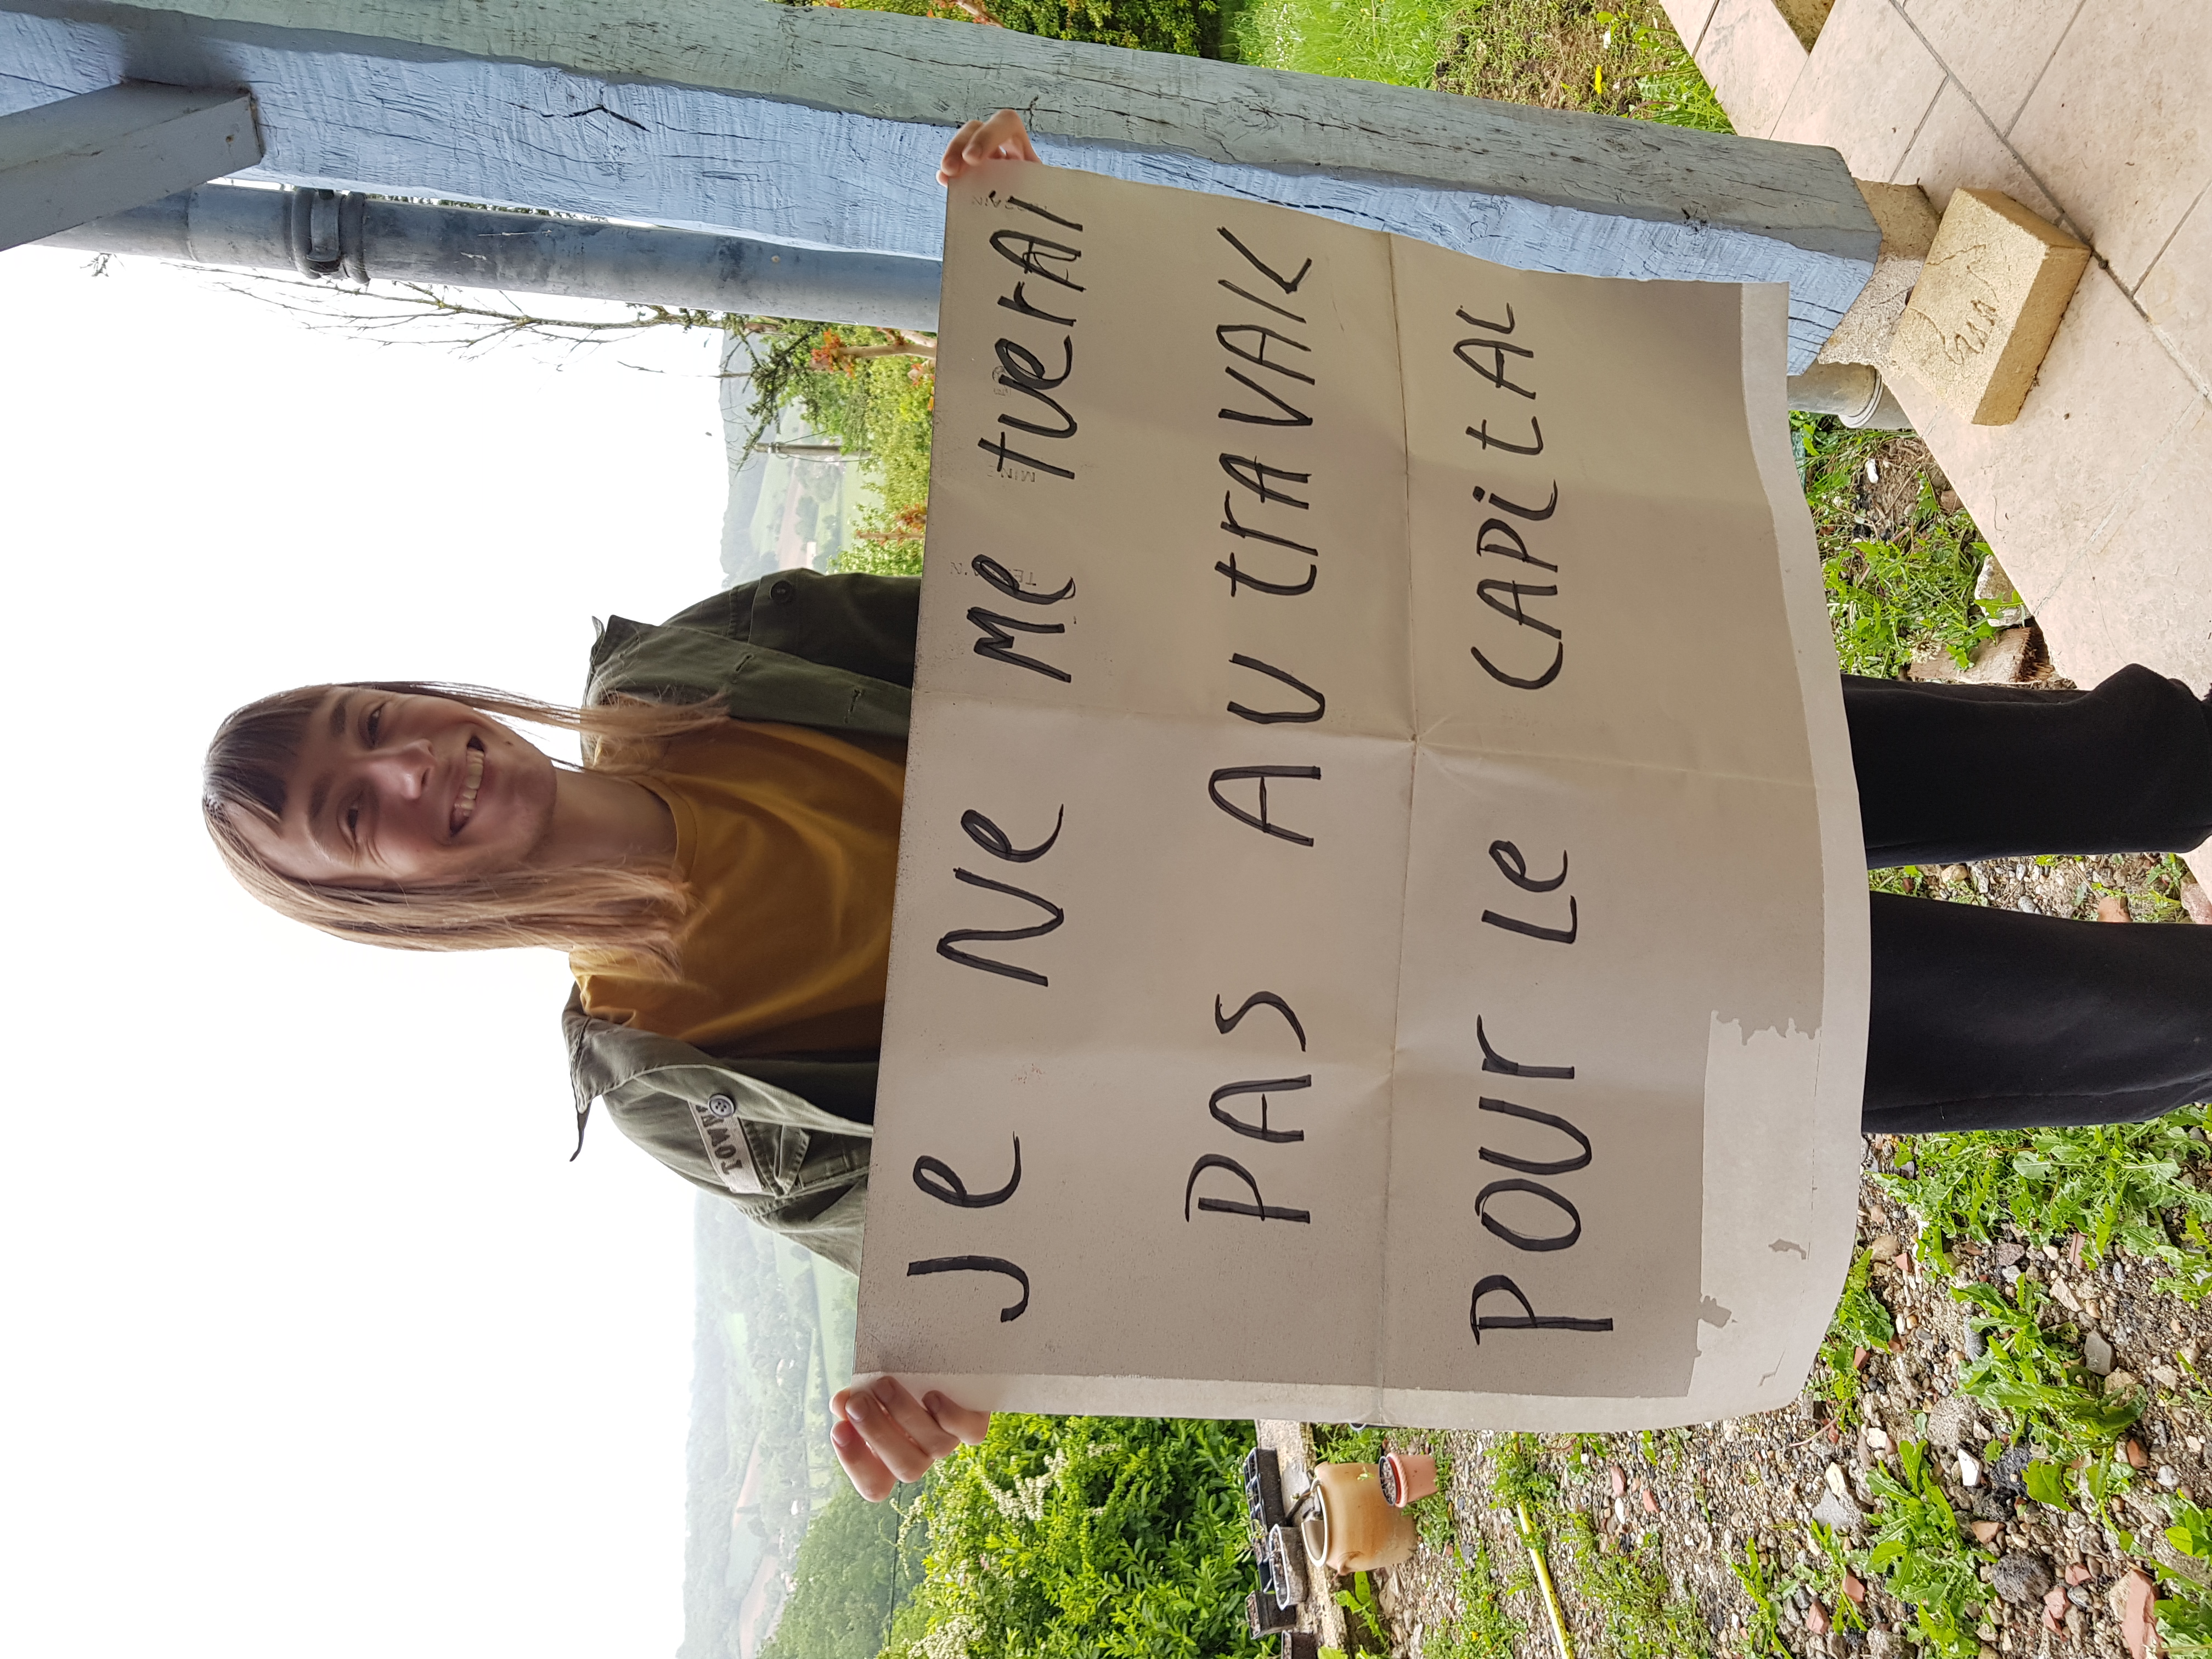 Je Ne Me tuerAi
PAS AU trAVAIL
POUr Le CAPitAL